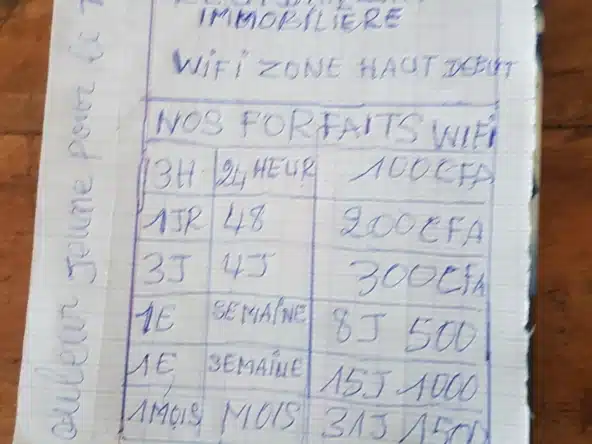 IMMOBILIÈRE
WIFI ZONE HAUT DEBUT
NOS FORFAITS WIFI
3H 24HEUR 100CFA
1JR 48 200CFA
3J 4J 300CFA
1E SEMAINE 8J 500
1E SEMAINE 15J 1000
1MOIS MOIS 31J 1500
couleur Jaune pour le